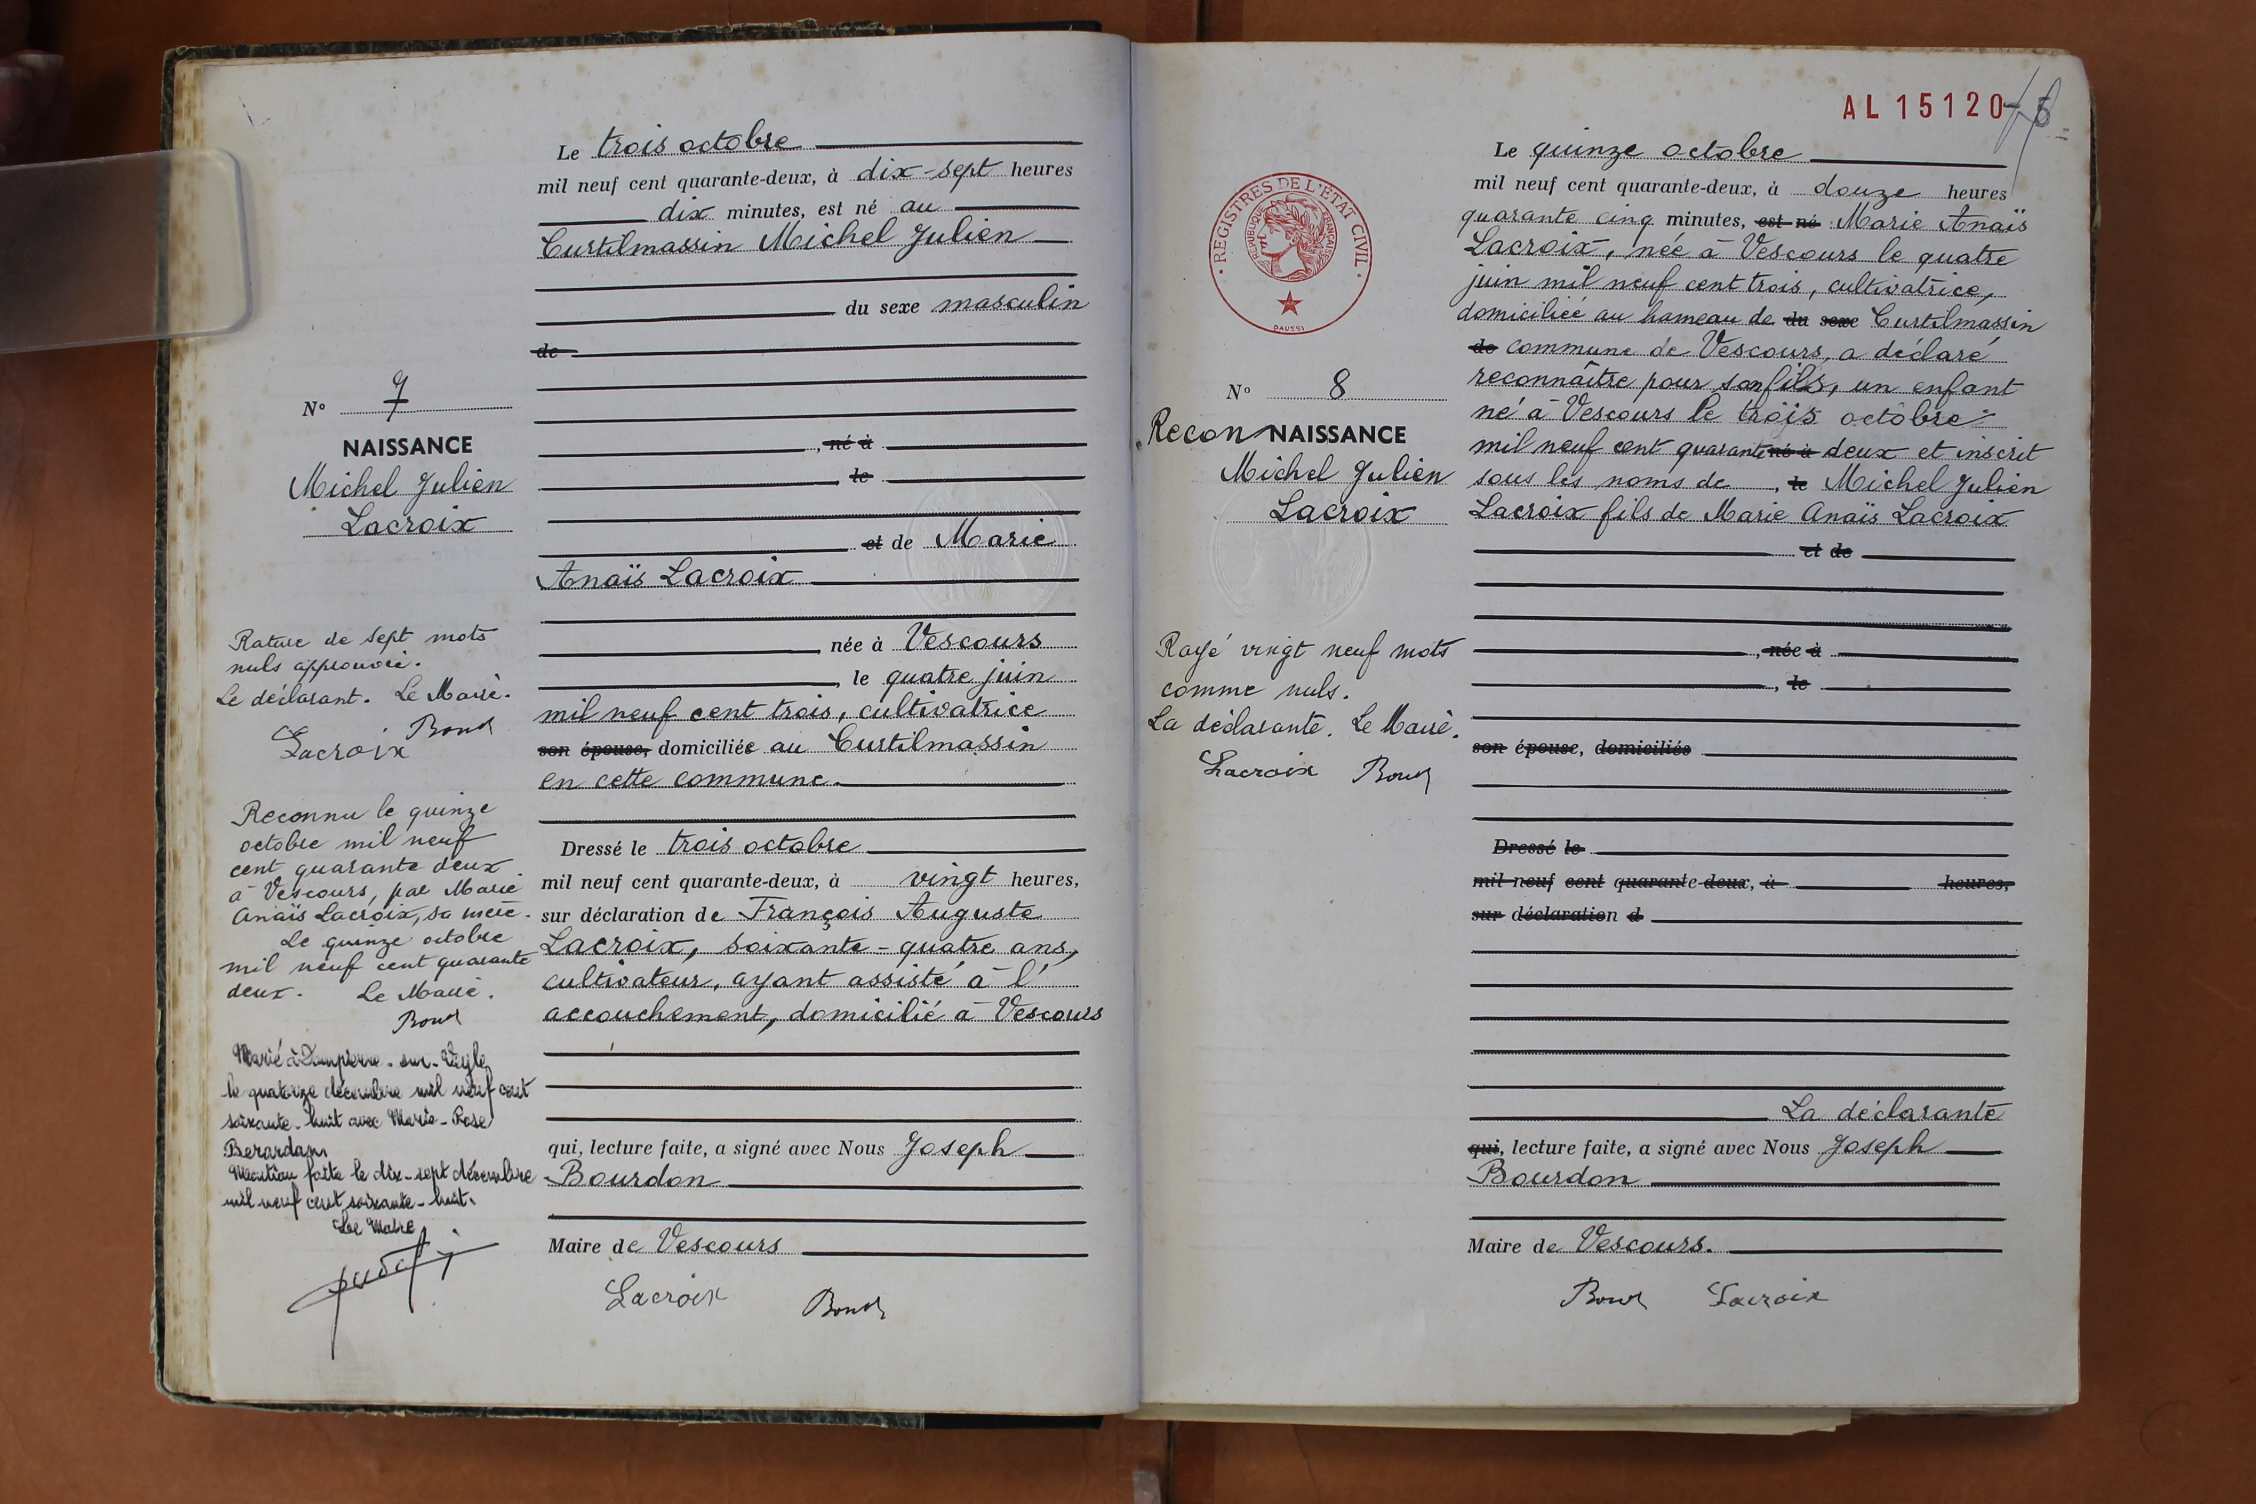 Le trois octobre
mil neuf cent quarante-deux, à dix-sept heures
dix minutes, est né au
Curtilmassin Michel Julien
du sexe masculin
de
, né à
le
et de Marie
Anaïs Lacroix
née à Vescours
, le quatre juin
mil neuf cent trois, cultivatrice
son épouse, domiciliée au Curtilmassin
en cette commune.
Dressé le trois octobre
mil neuf cent quarante-deux, à vingt heures,
sur déclaration de François Auguste
Lacroix, soixante-quatre ans,
cultivateur, ayant assisté à l'
accouchement, domicilié à Vescours
qui, lecture faite, a signé avec Nous Joseph
Bourdon
Maire de Vescours
Lacroix
N° 7
NAISSANCE
Michel Julien
Lacroix
Rature de sept mots
nuls approuvée.
Le déclarant. Le Maire.
Lacroix
Reconnu le quinze
octobre mil neuf
cent quarante deux
à Vescours, par Marie
Anaïs Lacroix, sa mère.
Le quinze octobre
mil neuf cent quarante
deux. Le Maire.
Marié à Dompierre-sur-Veyle
le quatorze décembre mil neuf cent
soixante-huit avec Marie-Rose
Berardan
Mention faite le dix-sept décembre
mil neuf cent soixante-huit.
Le Maire
AL 15120
REGISTRES DE L'ÉTAT CIVIL
RÉPUBLIQUE FRANÇAISE
DAUSSI
Le quinze octobre
mil neuf cent quarante-deux, à douze heures
quarante cinq minutes, est né Marie Anaïs
Lacroix, née à Vescours le quatre
juin mil neuf cent trois, cultivatrice,
domiciliée au hameau de du sexe Curtilmassin
de commune de Vescours, a déclaré
reconnaître pour son fils, un enfant
né à Vescours le trois octobre
mil neuf cent quarante né à deux et inscrit
sous les noms de , le Michel Julien
Lacroix fils de Marie Anaïs Lacroix
et de
, née à
, le
son épouse, domiciliés
Dressé le
mil neuf cent quarante-deux, à heures,
sur déclaration d
La déclarante
qui, lecture faite, a signé avec Nous Joseph
Bourdon
Maire de Vescours.
Lacroix
N° 8
Recon NAISSANCE
Michel Julien
Lacroix
Rayé vingt neuf mots
comme nuls.
La déclarante. Le Maire.
Lacroix